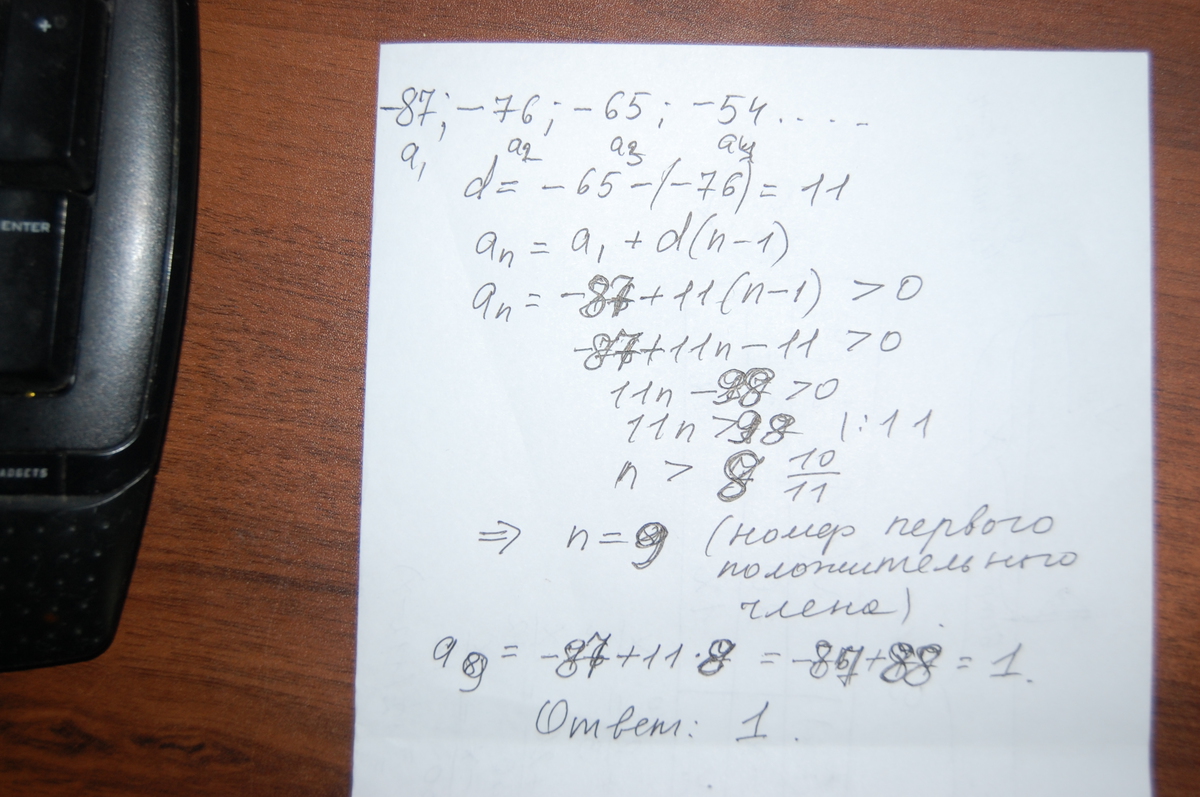 ENTER
ADGETS
-87; -76; -65; -54....
a₁ a₂ a₃ a₄
d = -65-(-76) = 11
aₙ = a₁ + d(n-1)
aₙ = -87+11(n-1) >0
-87+11n-11 >0
11n -98 >0
11n >98 |:11
n > 8 10/11
⇒ n=9 (номер первого
положительного
члена).
a₉ = -87+11·8 = -87+88 = 1.
Ответ: 1.